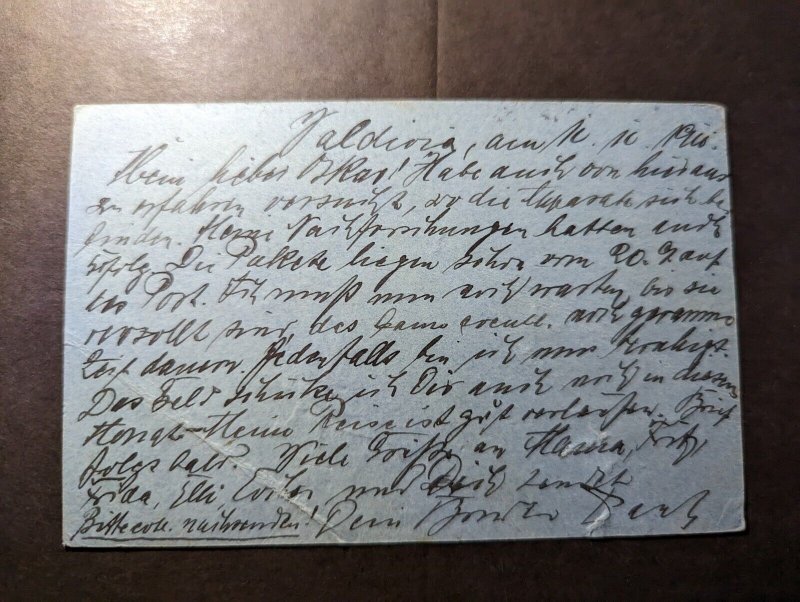 Valdivia, am 11. 11. 1910.
Mein lieber Oskar! Habe auch von hier aus
zu erfahren versucht, wo die Apparate sich be
finden. Meine Nachforschungen hatten auch
Erfolg. Die Pakete liegen schon vom 20. 9 auf
der Post. Ich muß nun noch warten, bis sie
verzollt sind, das kann event. noch geraume
Zeit dauern. Jedenfalls bin ich nun beruhigt.
Das Geld schicke ich Dir auch noch in diesem
Monat. Meine Reise ist gut verlaufen. Brief
folgt bald. Viele Grüße an Mama, Fritz,
Frida, Elli und Dich sendet
Bitte nachsenden! Dein Bruder